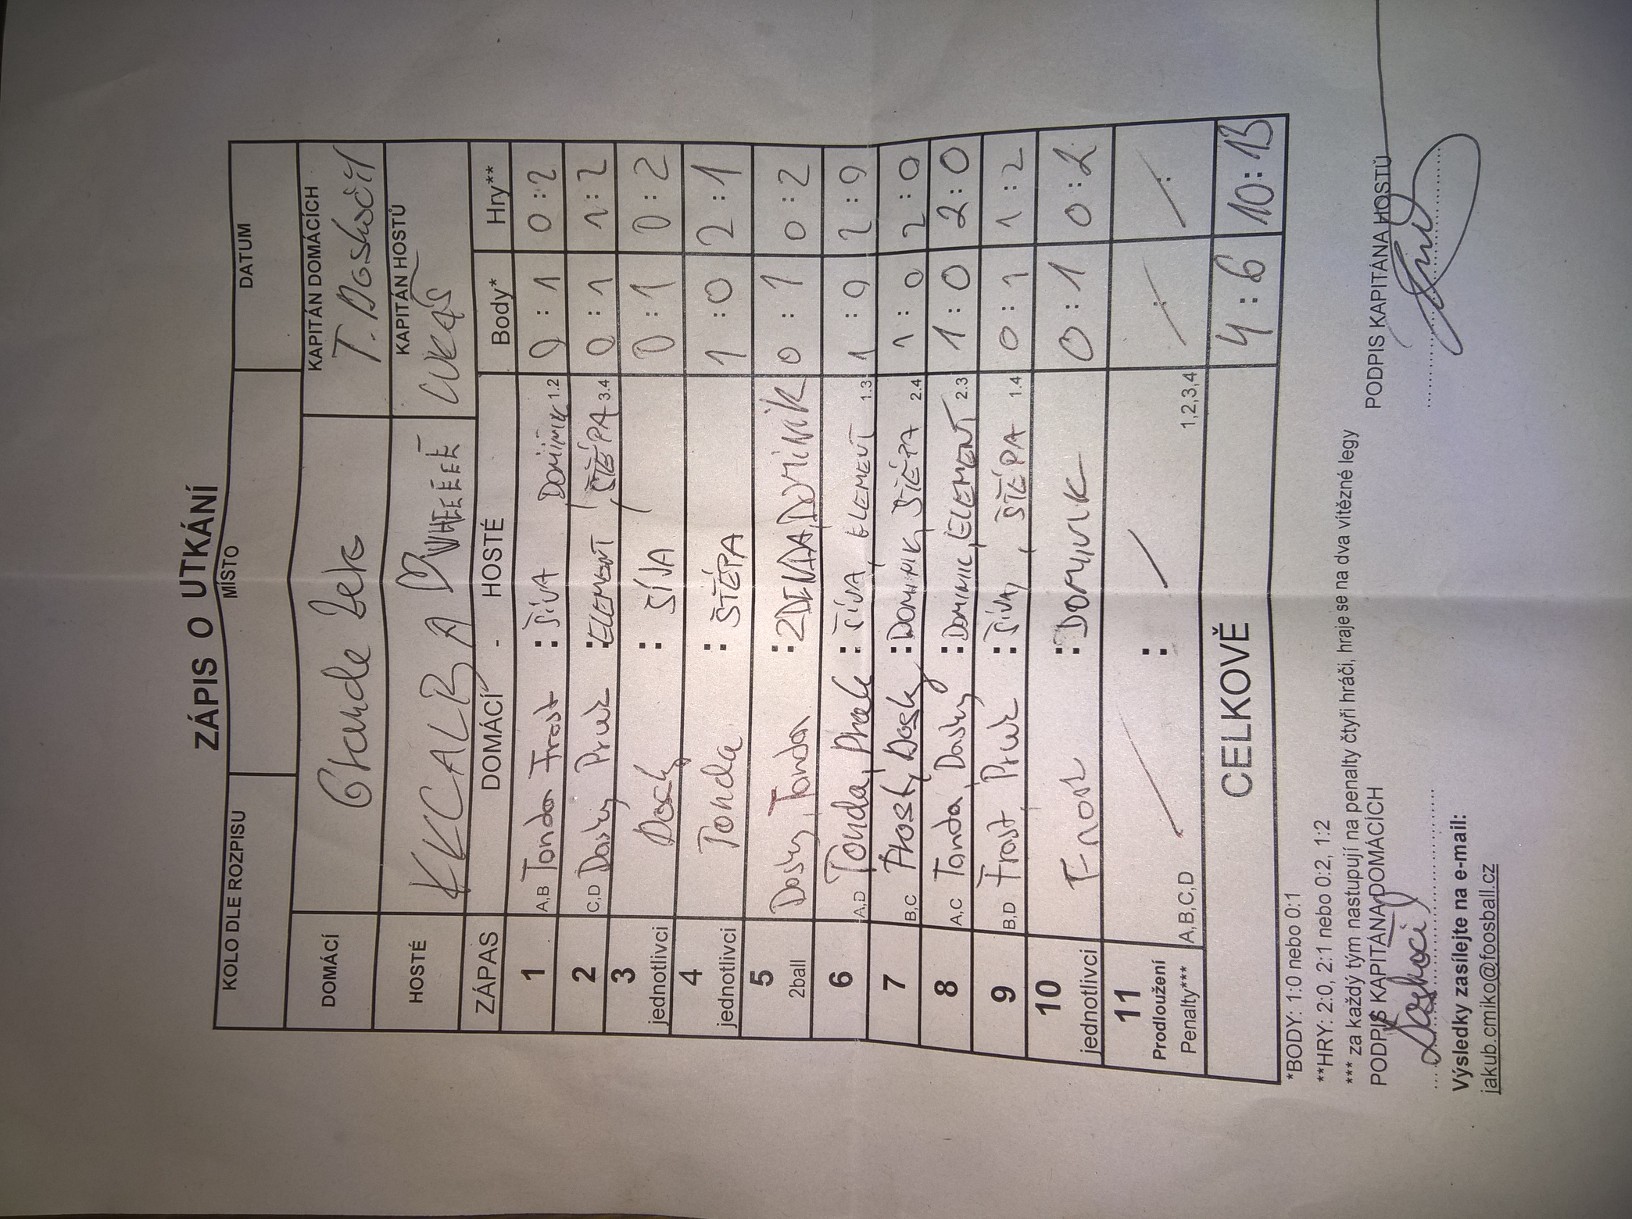 ZÁPIS O UTKÁNÍ
KOLO DLE ROZPISU MÍSTO DATUM
DOMÁCÍ Grande Zek KAPITÁN DOMÁCÍCH T. Doskočil
HOSTÉ KKCALB A WHEEEE KAPITÁN HOSTŮ LUKÁŠ
ZÁPAS DOMÁCÍ - HOSTÉ Body* Hry**
1 A,B Tonda Frost : SÍVA DOMINIK 1.2 0 : 1 0 : 2
2 C,D Dosky Pruz : ELEMENT, ŠTĚPA 3.4 0 : 1 1 : 2
3 jednotlivci Dosky : SÍVA 0 : 1 0 : 2
4 jednotlivci Tonda : ŠTĚPA 1 : 0 2 : 1
5 2ball Dosky, Tonda : ZDENDA, DOMINIK 0 : 1 0 : 2
6 A,D Tonda, : SÍVA, ELEMENT 1.3 1 : 0 2 : 0
7 B,C Dosky : DOMINIK, ŠTĚPA 2.4 1 : 0 2 : 0
8 A,C Tonda, Dosky : DOMINIK, ELEMENT 2.3 1 : 0 2 : 0
9 B,D Frost, Pruz : SÍVA, ŠTĚPA 1.4 0 : 1 1 : 2
10 jednotlivci Frost : DOMINIK 0 : 1 0 : 2
11 Prodloužení Penalty*** A,B,C,D : 1,2,3,4 : :
CELKOVĚ 4 : 6 10 : 13
*BODY: 1:0 nebo 0:1
**HRY: 2:0, 2:1 nebo 0:2, 1:2
*** za každý tým nastupují na penalty čtyři hráči, hraje se na dva vítězné legy
PODPIS KAPITÁNA DOMÁCÍCH PODPIS KAPITÁNA HOSTŮ
Doskočil
Výsledky zasílejte na e-mail:
jakub.cmiko@foosball.cz